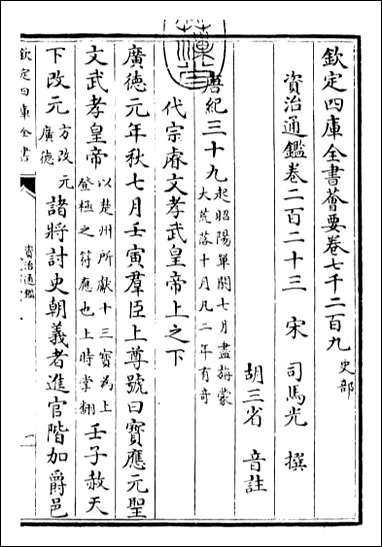 欽定四庫全書薈要卷七千二百九 史部
資治通鑑卷二百二十三 宋 司馬光 撰
胡三省 音註
唐紀三十九 起昭陽單閼七月盡旃蒙大荒落十月凡二年有奇
代宗睿文孝武皇帝上之下
廣德元年秋七月壬寅羣臣上尊號曰寶應元聖
文武孝皇帝 以楚州所獻十三寶為上登極之符應也上時掌翻 壬子赦天
下改元 方改元廣德 諸將討史朝義者進官階加爵邑
欽定四庫全書
資治通鑑
一